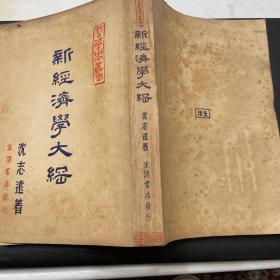 新經濟學大綱
沈志遠著
生活書店發行
新經濟學大綱
沈志遠著
生活書店發行
生活